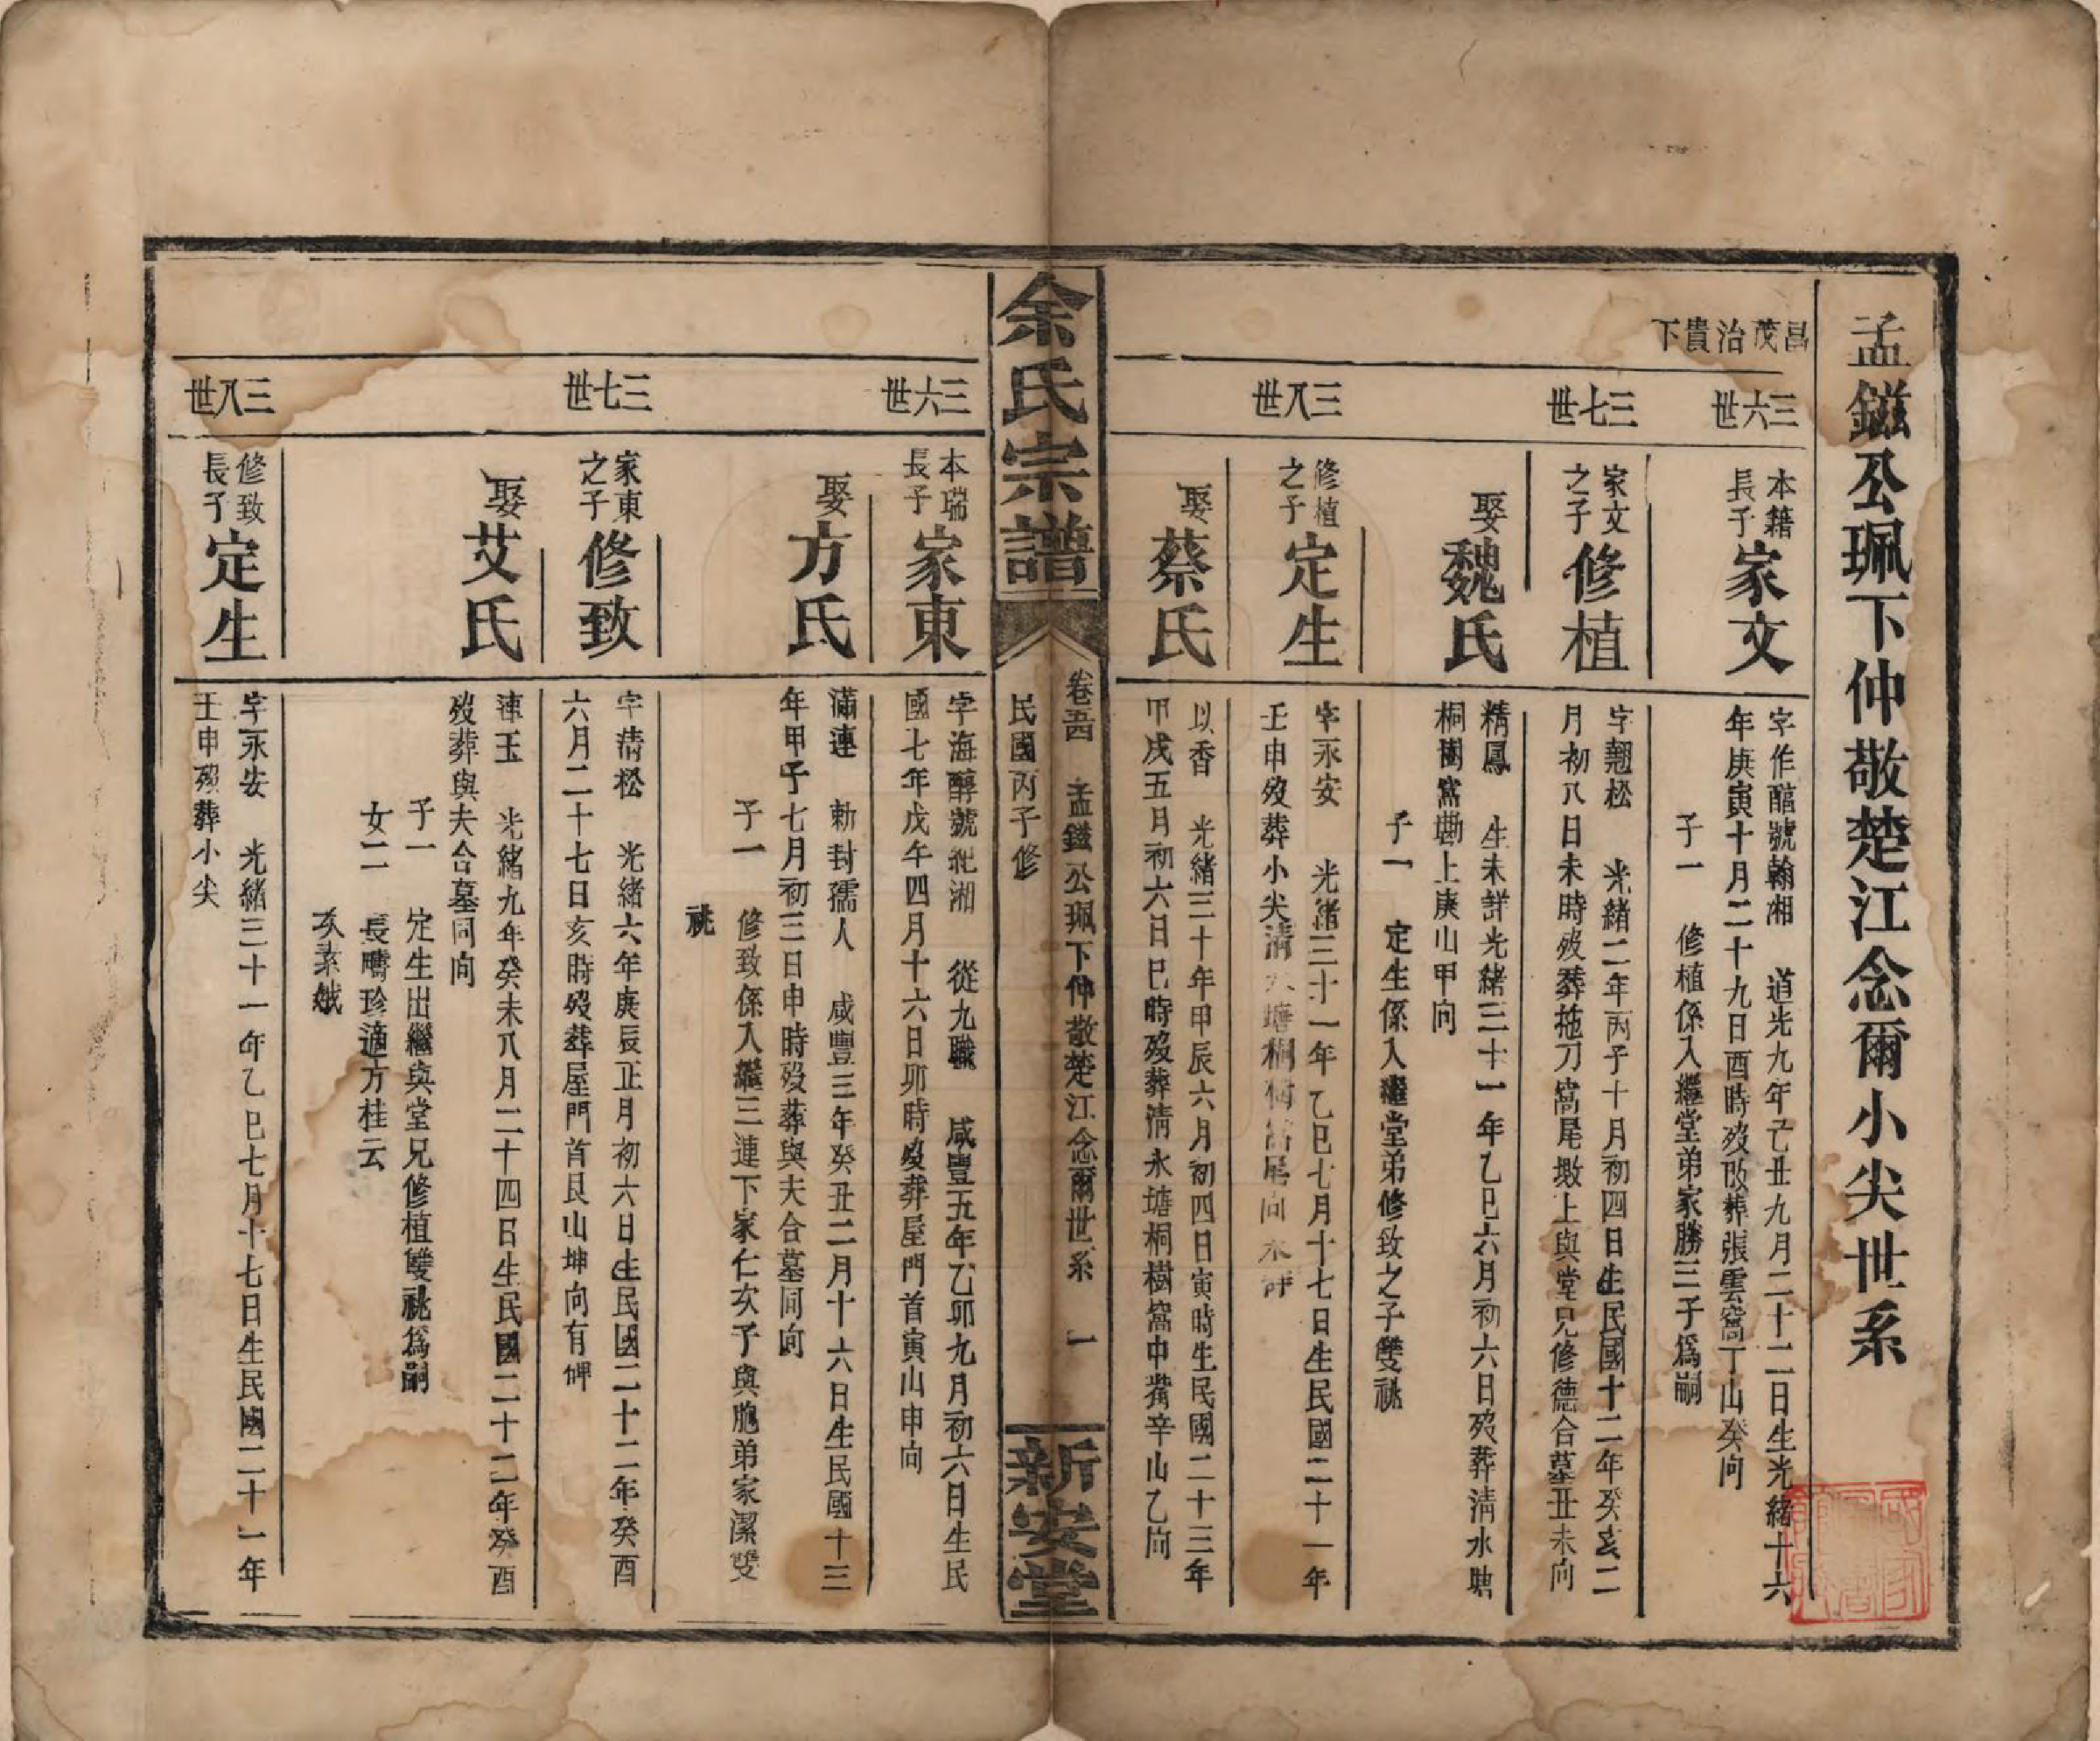 孟鎡公珮下仲敬楚江念爾小尖世系
昌茂治貴下
三六世
本籍長子
家文
字作醢號翰湘 道光九年己丑九月二十二日生光緒十六
年庚寅十月二十九日酉時歿改葬張雲窩丁山癸向
子一 修植係入繼堂弟家勝三子爲嗣
三七世
家文之子
修植
字翹松 光緒二年丙子十月初四日生民國十二年癸亥二
月初八日未時歿葬拖刀窩尾墩上與堂兄修德合墓丑未向
娶
魏氏
精鳳 生未詳光緒三十一年乙巳六月初六日歿葬清水塘
桐樹窩墈上庚山甲向
子一 定生係入繼堂弟修致之子雙祧
三八世
修植之子
定生
字永安 光緒三十一年乙巳七月十七日生民國二十一年
壬申歿葬小尖清水塘桐樹窩尾向未詳
娶
蔡氏
以香 光緒三十年甲辰六月初四日寅時生民國二十三年
甲戌五月初六日巳時歿葬清水塘桐樹窩中嘴辛山乙向
余氏宗譜
卷五四 孟鎡公珮下仲敬楚江念爾世系 一
民國丙子修
新安堂
三六世
本瑞長子
家東
字海醇號紀湘 從九職 咸豐五年乙卯九月初六日生民
國七年戊午四月十六日卯時歿葬屋門首寅山申向
娶
方氏
滿連 勅封孺人 咸豐三年癸丑二月十六日生民國十三
年甲子七月初三日申時歿葬與夫合墓同向
子一 修致係入繼三連下家仁次子與胞弟家潔雙
祧
三七世
家東之子
修致
字清松 光緒六年庚辰正月初六日生民國二十二年癸酉
六月二十七日亥時歿葬屋門首艮山坤向有碑
娶
艾氏
連玉 光緒九年癸未八月二十四日生民國二十二年癸酉
歿葬與夫合墓同向
子一 定生出繼與堂兄修植雙祧爲嗣
女二 長疇珍適方桂云
次素娥
三八世
修致長子
定生
字永安 光緒三十一年乙巳七月十七日生民國二十一年
壬申歿葬小尖